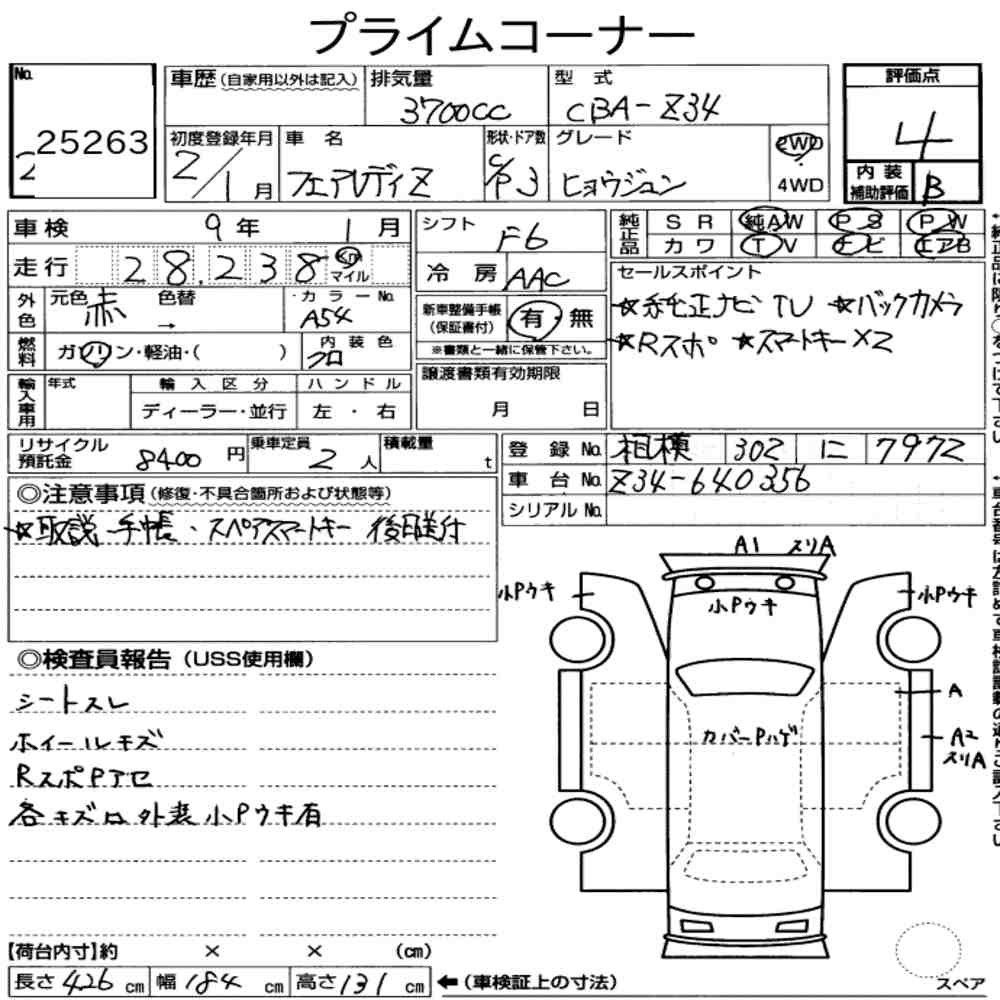 プライムコーナー
No. 25263
車歴(自家用以外は記入) 排気量 3700CC 型式 CBA-Z34
評価点 4
内装補助評価 B
初度登録年月 2/1月 車名 フェアレディZ 形状・ドア数 C/P 3 グレード ヒョウジュン 2WD 4WD
車検 9年 1月 シフト F6
走行 28,238 Km マイル 冷房 AAC
純正品 SR 純AW PS PW
カワ TV ナビ エアB
セールスポイント
☆純正ナビTV ☆バックカメラ
☆Rスポ ☆スマートキー×2
外色 元色 赤 色替 → カラーNo. A54
新車整備手帳(保証書付) 有・無
※書類と一緒に保管下さい。
燃料 ガソリン・軽油・( ) 内装色 クロ
輸入車用 年式 輸入区分 ハンドル
ディーラー・並行 左・右
譲渡書類有効期限
月 日
リサイクル預託金 8400円 乗車定員 2人 積載量 t
登録No. 相模 302 に 7972
車台No. Z34-640356
シリアルNo.
◎注意事項(修復・不具合箇所および状態等)
☆取説 手帳・スペアスマートキー 後日送付
A1 スリA
小Pウキ
小Pウキ
小Pウキ
カバーPハゲ
A
A2
スリA
◎検査員報告(USS使用欄)
シートスレ
ホイールキズ
RスポPアセ
各キズ凹外装小Pウキ有
【荷台内寸】約 × × (cm)
長さ426cm 幅184cm 高さ131cm ←(車検証上の寸法)
スペア